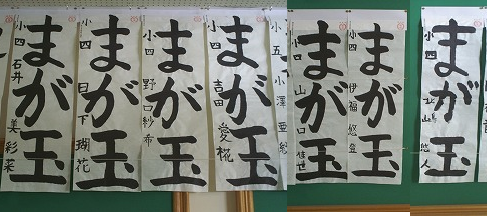 まが玉
小四 石井 美彩菜
まが玉
小四 日下 瑚花
まが玉
小四 野口紗希
まが玉
小四 吉田 愛椛
小五 小澤亜
まが玉
小四 山口 佳世
まが玉
小四 伊福悠登
まが玉
小四 悠人